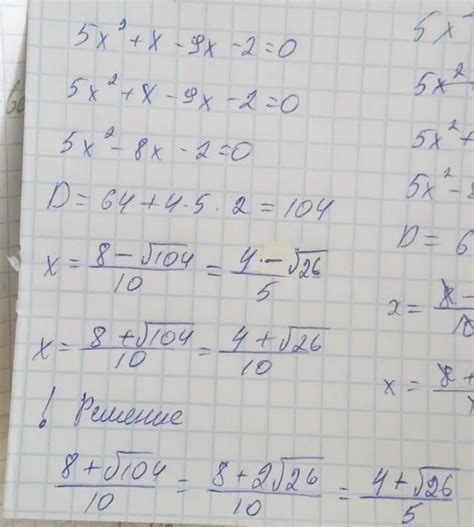 5x² + x - 9x - 2 = 0
5x² + x - 9x - 2 = 0
5x² - 8x - 2 = 0
D = 64 + 4·5·2 = 104
x = (8 - √104)/10 = (4 - √26)/5
x = (8 + √104)/10 = (4 + √26)/10
! Решение
(8 + √104)/10 = (8 + 2√26)/10 = (4 + √26)/5
5x
5x²
5x² +
5x² - 8
D = 6
x = 8 -
x = 8 +